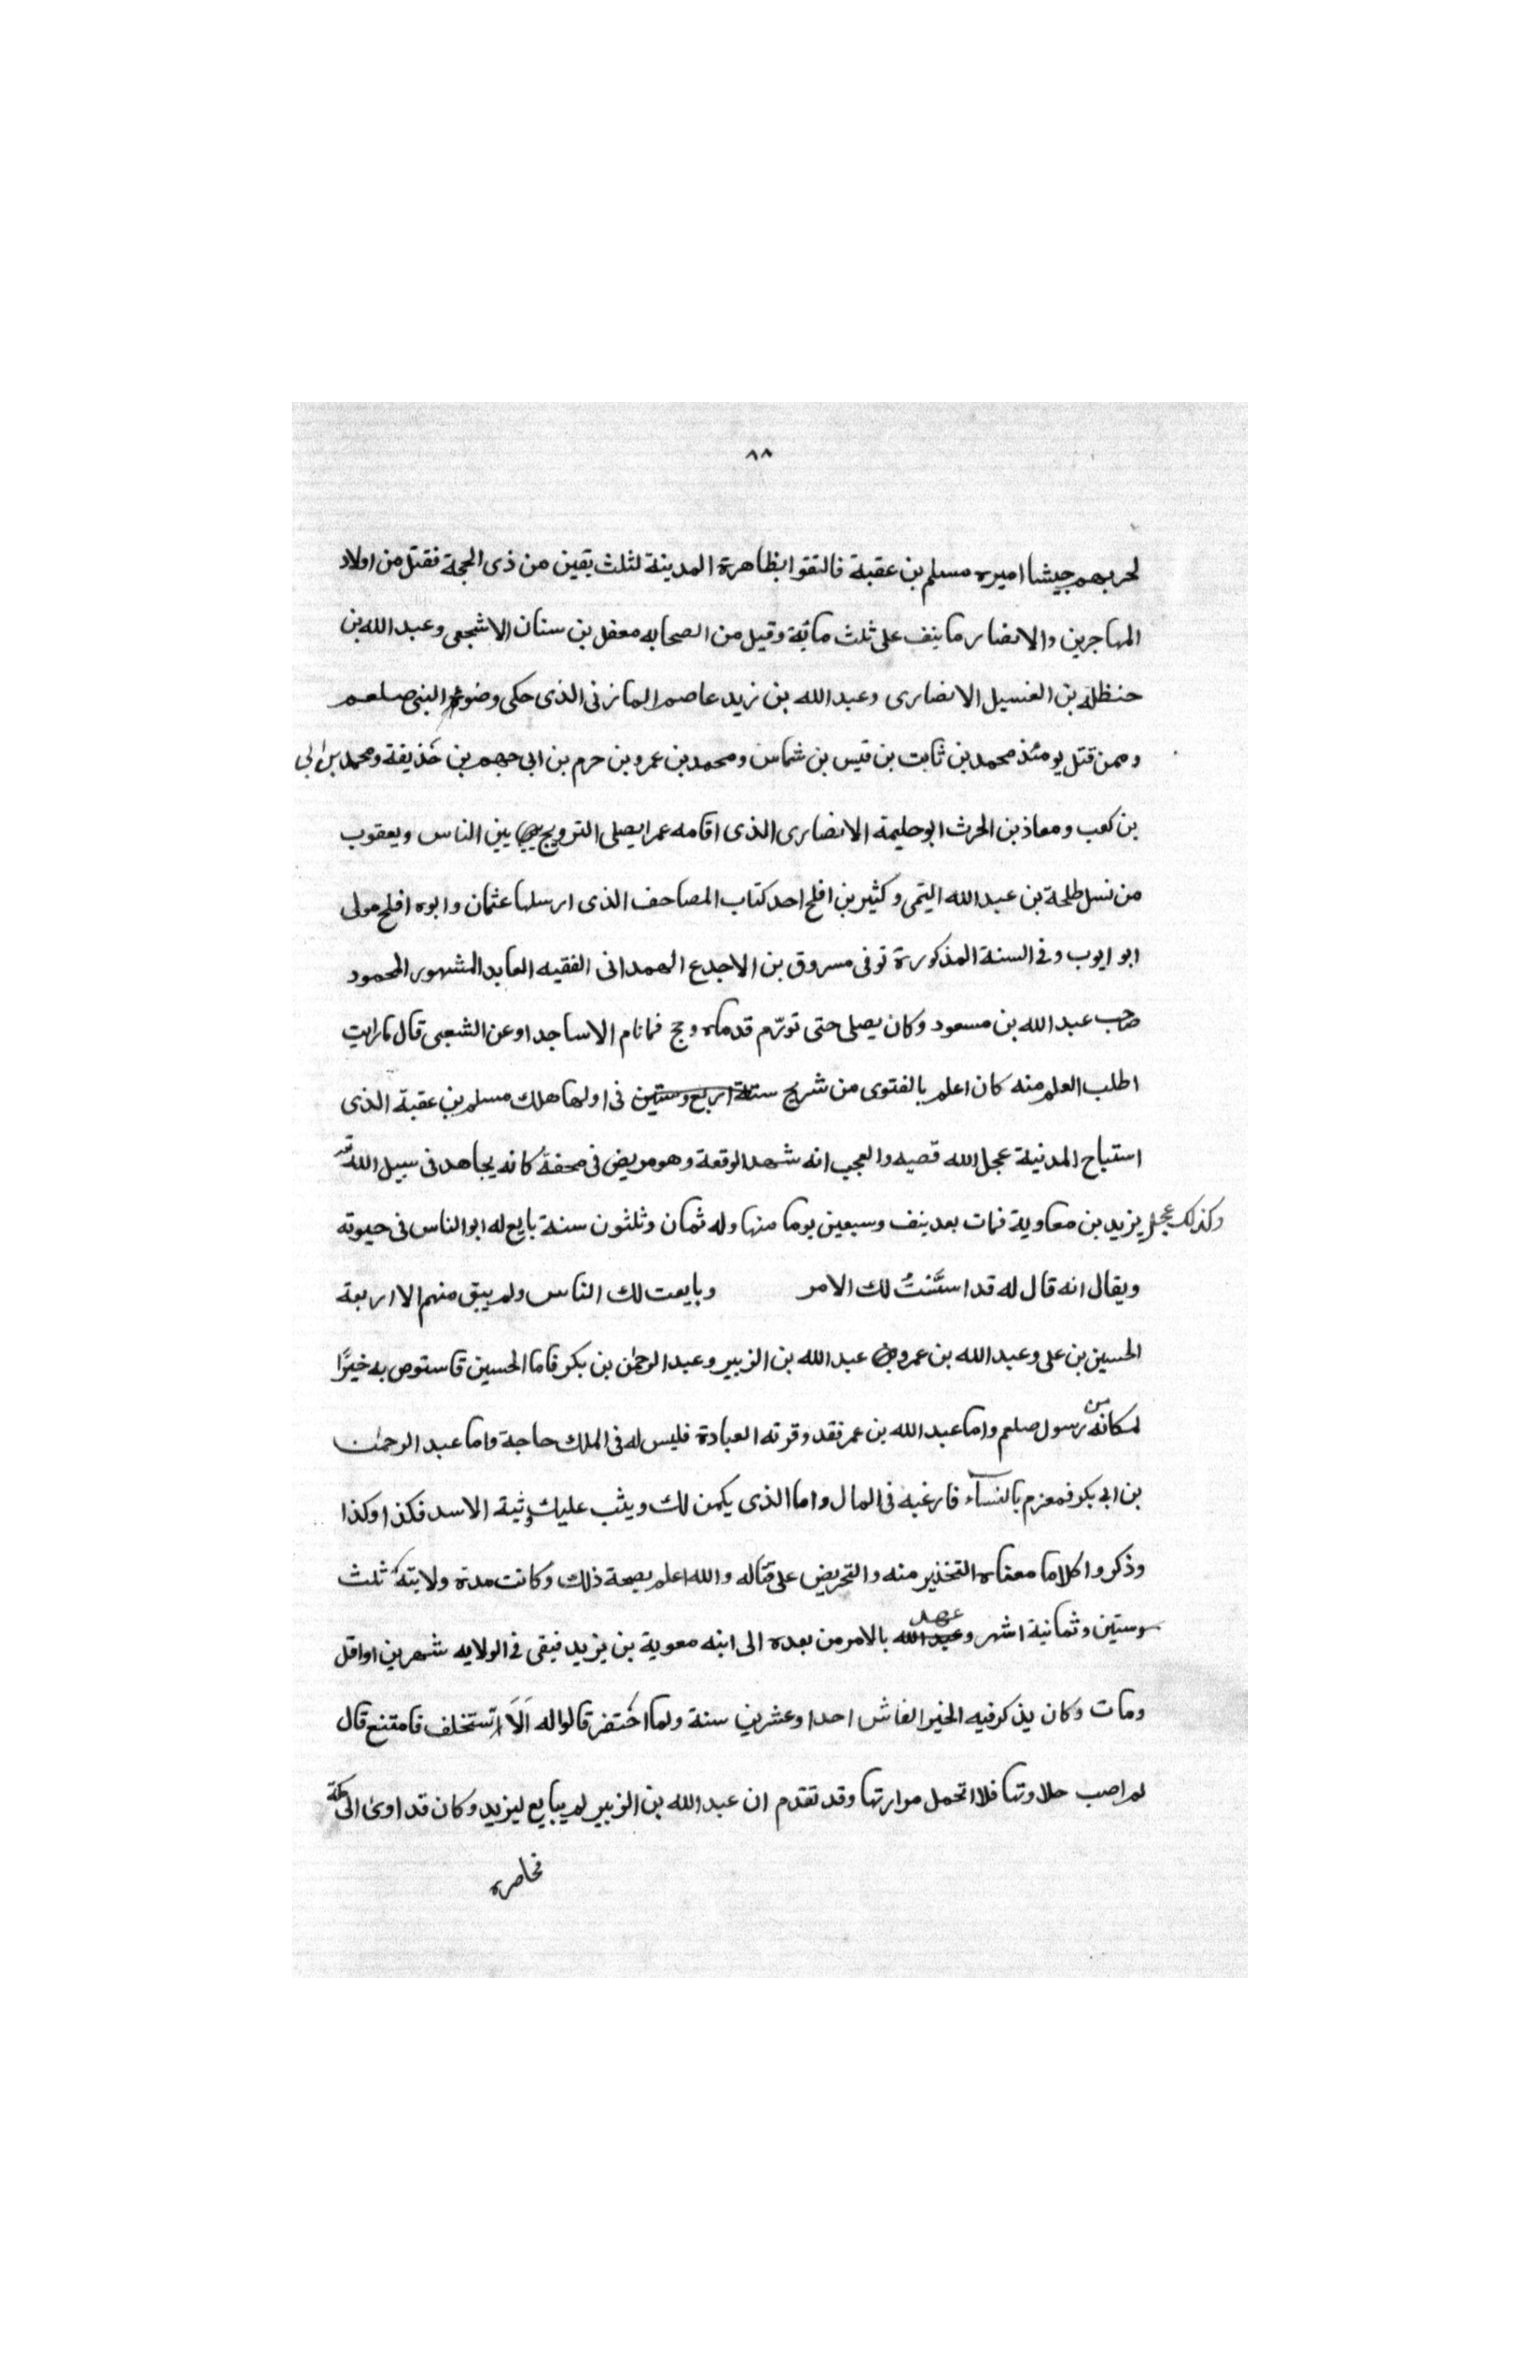 ٨٨
لحربهم جيشا اميره مسلم بن عقبة فالتقوا بظاهرة المدينة لثلث بقين من ذى الحجة فقتل من اولاد
المهاجرين والانصار ما ينف على ثلث مائة وقيل من الصحابه معقل بن سنان الاشجعى وعبد الله بن
حنظلة بن الغسيل الانصارى وعبد الله بن زيد عاصم المازنى الذى حكى وضوء النبى صلعم
وممن قتل يومئذ محمد بن ثابت بن قيس بن شماس ومحمد بن عمرو بن حرم بن ابى جهم بن حذيفة ومحمد بن ابى
بن كعب ومعاذ بن الحرث ابو حليمة الانصارى الذى اقامه عمر ايصلى الترويح بين الناس ويعقوب
من نسل طلحة بن عبد الله التيمى وكثير بن افلح احد كتاب المصاحف الذى ارسلها عثمان وابوه افلح مولى
ابو ايوب وفى السنة المذكورة توفى مسروق بن الاجدع الهمدانى الفقيه العابد المشهور المحمود
صاحب عبد الله بن مسعود وكان يصلى حتى تورّم قدماه وحج فما نام الا ساجدا وعن الشعبى قال ما رايت
اطلب العلم منه كان اعلم بالفتوى من شريح سنة اربع وستين فى اولها هلك مسلم بن عقبة الذى
استباح المدنية عجل الله قصيه والعجب انه شهد الوقعة وهو مريض فى محفة كانه يجاهد فى سبيل الله
وكذلك عجل يزيد بن معاوية فمات بعد ينف وسبعين يوما منها وله ثمان وثلثون سنة بايع له ابوا الناس فى حيوته
ويقال انه قال له قد استنت لك الامر وبايعت لك الناس ولم يبق منهم الا اربعة
الحسين بن على وعبد الله بن عمر و عبد الله بن الزبير وعبد الرحمن بن بكر فاما الحسين فاستوص به خيرًا
لمكانه من رسول صلعم واما عبد الله بن عمر فقد وقرته العبادة فليس له فى الملك حاجة واما عبد الرحمن
بن ابى بكر فمغرم بالنساء فارغبه فى المال واما الذى يكمن لك ويثب عليك وثبة الاسد فكذا وكذا
وذكروا كلاما معناه التخذير منه والتحريض على قتاله والله اعلم بصحة ذلك وكانت مدة ولايته ثلث
وستين وثمانية اشهر وعبد الله عهد بالامر من بعده الى ابنه معوية بن يزيد فبقى فى الولايه شهرين او اقل
ومات وكان يذكر فيه الخير الفاش احدا وعشرين سنة ولما احتضر قالوا له اَلَا تستخلف فامتنع قال
لم اصب حلاوتها فلا اتحمل مرارتها وقد تقدم ان عبد الله بن الزبير لم يبايع ليزيد وكان قد اوى الى مكة
فحاصره